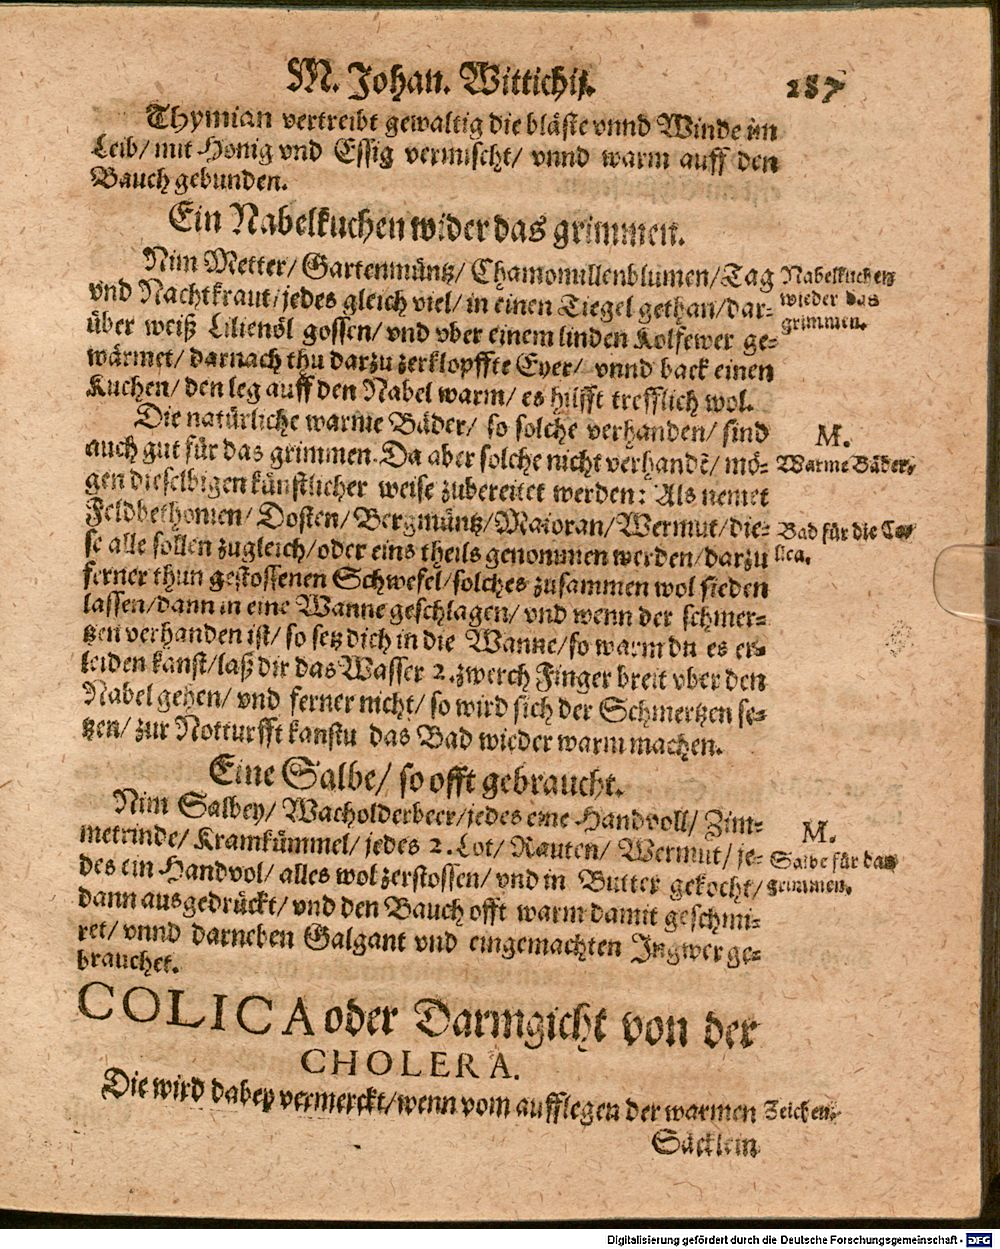 M. Johan. Wittichij. 287
Thymian vertreibt gewaltig die bläste vnnd Winde im
Leib/ mit Honig vnd Essig vermischt/ vnnd warm auff den
Bauch gebunden.
Ein Nabelkuchen wider das grimmen.
Nim Metter/ Gartenmüntz/ Chamomillenblumen/ Tag
vnd Nachtkraut/ jedes gleich viel/ in einen Tiegel gethan/ dar-
über weiß Lilienöl gossen/ vnd vber einem linden Kolfewer ge-
wärmet/ darnach thu darzu zerklopffte Eyer/ vnnd back einen
Kuchen/ den leg auff den Nabel warm/ es hilfft trefflich wol.
Nabelkuchen
wieder das
grimmen.
Die natürliche warme Bäder/ so solche verhanden/ sind
auch gut für das grimmen. Da aber solche nicht verhandē/ mö-
gen dieselbigen künstlicher weise zubereitet werden: Als nemet
Feldbethonien/ Dosten/ Bergmüntz/ Maioran/ Wermut/ die-
se alle sollen zugleich/ oder eins theils genommen werden/ darzu
ferner thun gestossenen Schwefel/ solches zusammen wol sieden
lassen/ dann in eine Wanne geschlagen/ vnd wenn der schmer-
tzen verhanden ist/ so setz dich in die Wanne/ so warm du es er-
leiden kanst/ laß dir das Wasser 2. zwerch Finger breit vber den
Nabel gehen/ vnd ferner nicht/ so wird sich der Schmertzen se-
tzen/ zur Notturfft kanstu das Bad wieder warm machen.
M.
Warme Bäder.
Bad für die Co-
lica.
Eine Salbe/ so offt gebraucht.
Nim Salbey/ Wacholderbeer/ jedes eine Handvoll/ Zim-
metrinde/ Kramkümmel/ jedes 2. Lot/ Rauten/ Wermut/ je-
des ein Handvol/ alles wol zerstossen/ vnd in Butter gekocht/
dann ausgedrückt/ vnd den Bauch offt warm damit geschmi-
ret/ vnnd darneben Galgant vnd eingemachten Ingwer ge-
brauchet.
M.
Salbe für das
grimmen.
COLICA oder Darmgicht von der
CHOLERA.
Die wird dabey vermerckt/ wenn vom aufflegen der warmen
Zeichen.
Säcklein
Digitalisierung gefördert durch die Deutsche Forschungsgemeinschaft - DFG